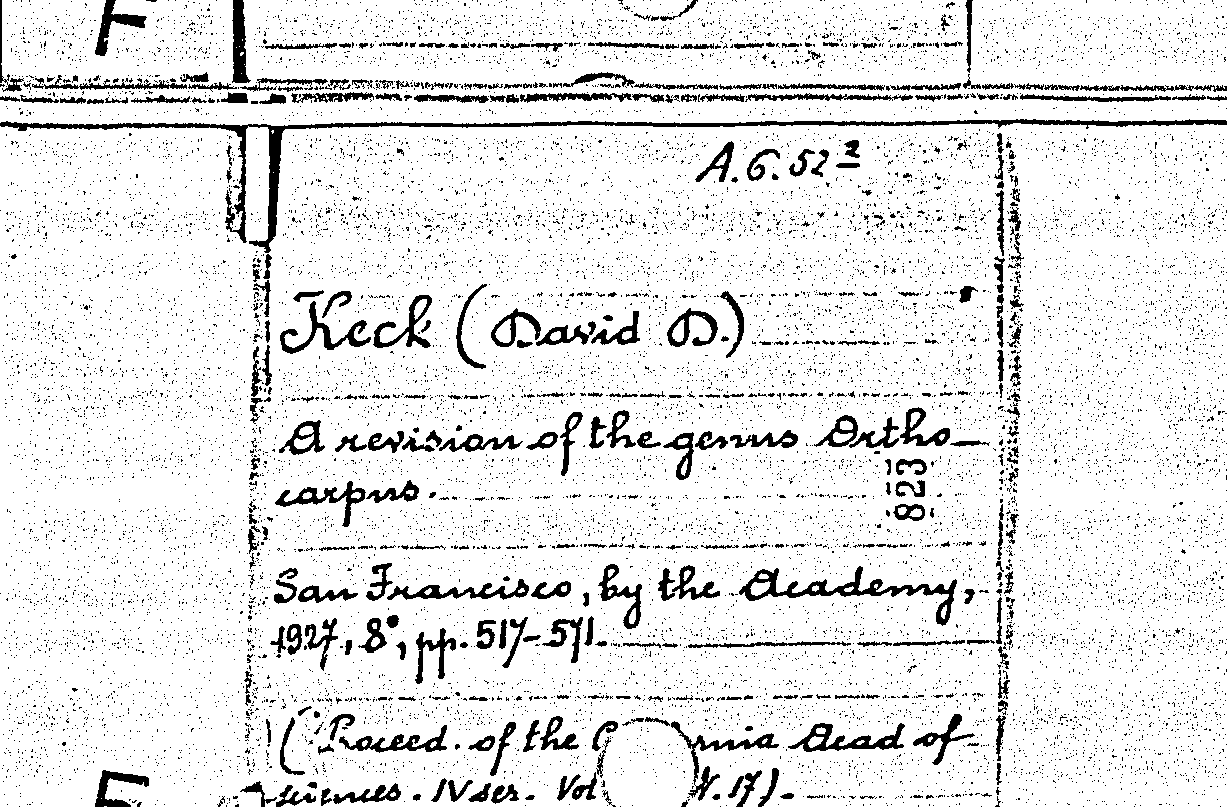 F
A.6.52 2
Keck (David D.)
A revision of the genus Ortho-
carpus.
823
San Francisco, by the Academy,
1927, 8°, pp. 517-571.
(Proceed. of the rnia Acad of
sciences. IV ser. Vol N. 17).